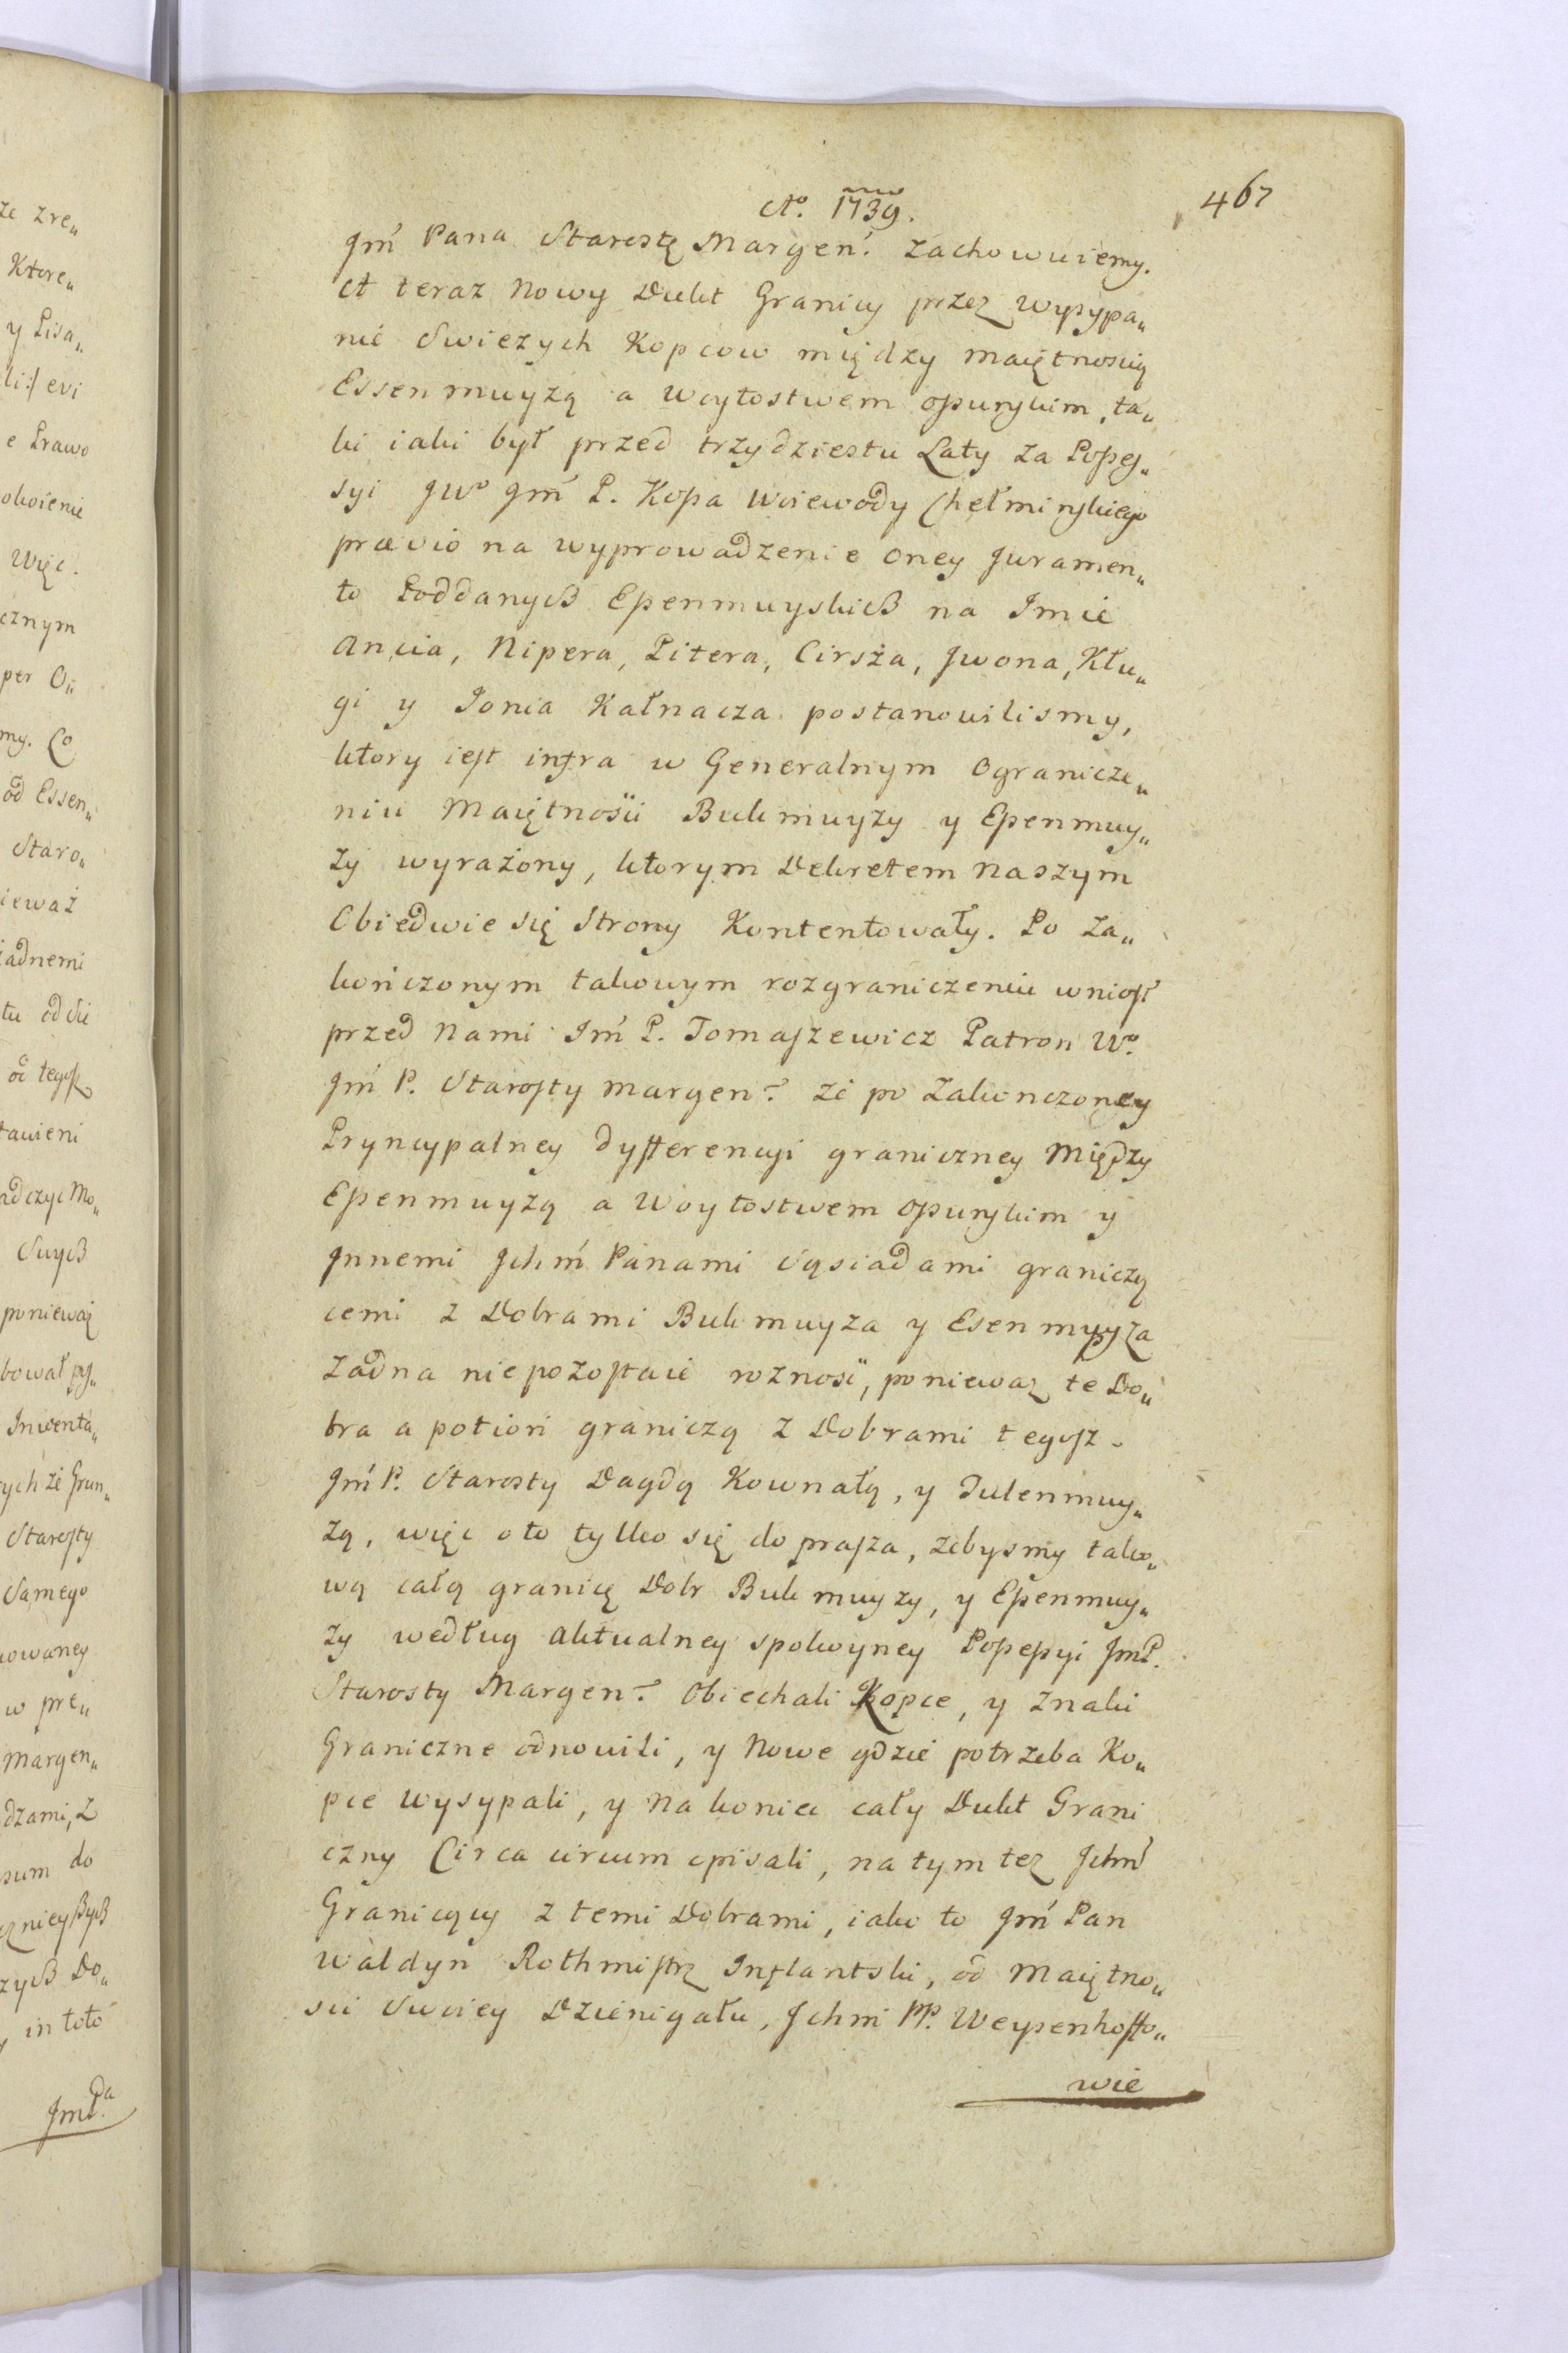 Ao. 1739.
467
Jmć Pana Starostę Margen. zachowuiemy.
A teraz Nowy Dukt Granicy przez wysypa„
nie Swiezych Kopcow między maiętnoscią
Essenmuyzą a Woytostwem opunskim, ta„
ki iaki był przed trzydziestu Laty za Posses„
syi JWo Jmć P. Kosa Woiewody Chełminskiego
prævio na wyprowadzenie oney Juramen„
to Poddanych Essenmuyskich na Imie
Ancia, Nipera, Pitera, Cirsża, Jwona, Kłu„
gi y Jonia Kałnacza postanowilismy,
ktory iest infra w Generalnym Ogranicze„
niu Maiętnosci Bukmuyzy y Essenmuy„
zy wyrażony, ktorym Dekretem naszym
Obiedwie się Strony Kontentowały. Po za„
kończonym takowym rozgraniczeniu wniosł
przed nami Jmć P. Tomaszewicz Patron Wo.
Jmć P. Starosty Margen. że po zakonczoney
Pryncypalney dyfferencyi graniczney Między
Essenmuyzą a Woytostwem opunskim y
Jnnemi Jchmć Panami Sąsiadami granicza
cemi z Dobrami Bukmuyza y Esenmuyza
Zadna nie pozostaie roznosć, poniewaz te Do„
bra a potiori graniczą z Dobrami tegosz
Jmć P. Starosty Dagdą Kownatą, y Julenmuy„
zą, więc o to tylko się do prasza, zebysmy tako„
wą całą granicę Dobr Bukmuyzy, y Essenmuy„
zy według aktualney spokoyney Possessyi Jmć P.
Starosty Margen. Obiechali Kopce, y Znaki
Graniczne odnowili, y Nowe gdzie potrzeba Ko„
pce wysypali, y na koniec cały Dukt Grani
czny Circa circum opisali, na tym tez Jchmć
Graniczący z temi Dobrami, iako to Jmć Pan
Waldyn Rothmistrz Inflantski, od Maiętno„
sci Swoiey Dzienigału, Jchmć PP. Weyssenhoffo„
wie